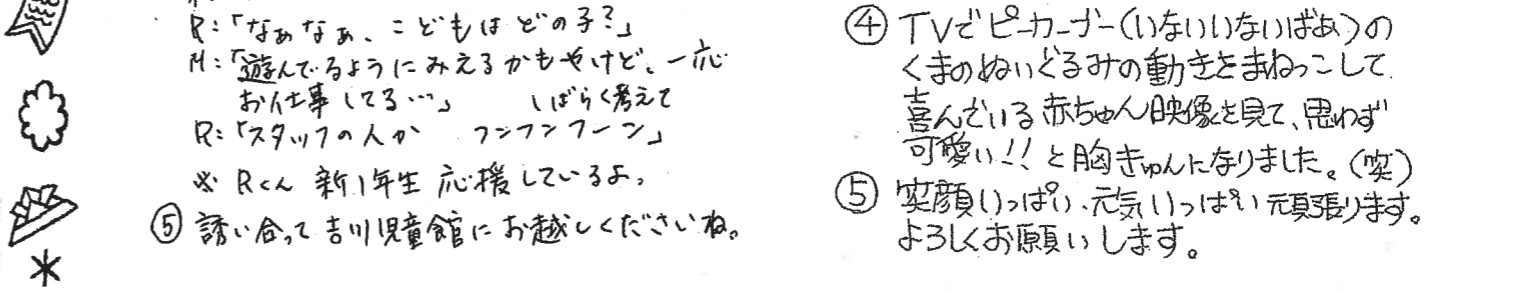 R:「なぁなぁ、こどもはどの子?」
M:「遊んでるようにみえるかもやけど、一応
お仕事してる…」　しばらく考えて
R:「スタッフの人か　フンフンフーン」
※ Rくん 新1年生 応援しているよ。
⑤ 誘い合って吉川児童館にお越しくださいね。
④ TVでピーカーブー(いないいないばあ)の
くまのぬいぐるみの動きをまねっこして
喜んでいる赤ちゃん映像を見て、思わず
可愛い!!と胸きゅんになりました。(笑)
⑤ 笑顔いっぱい、元気いっぱい頑張ります。
よろしくお願いします。